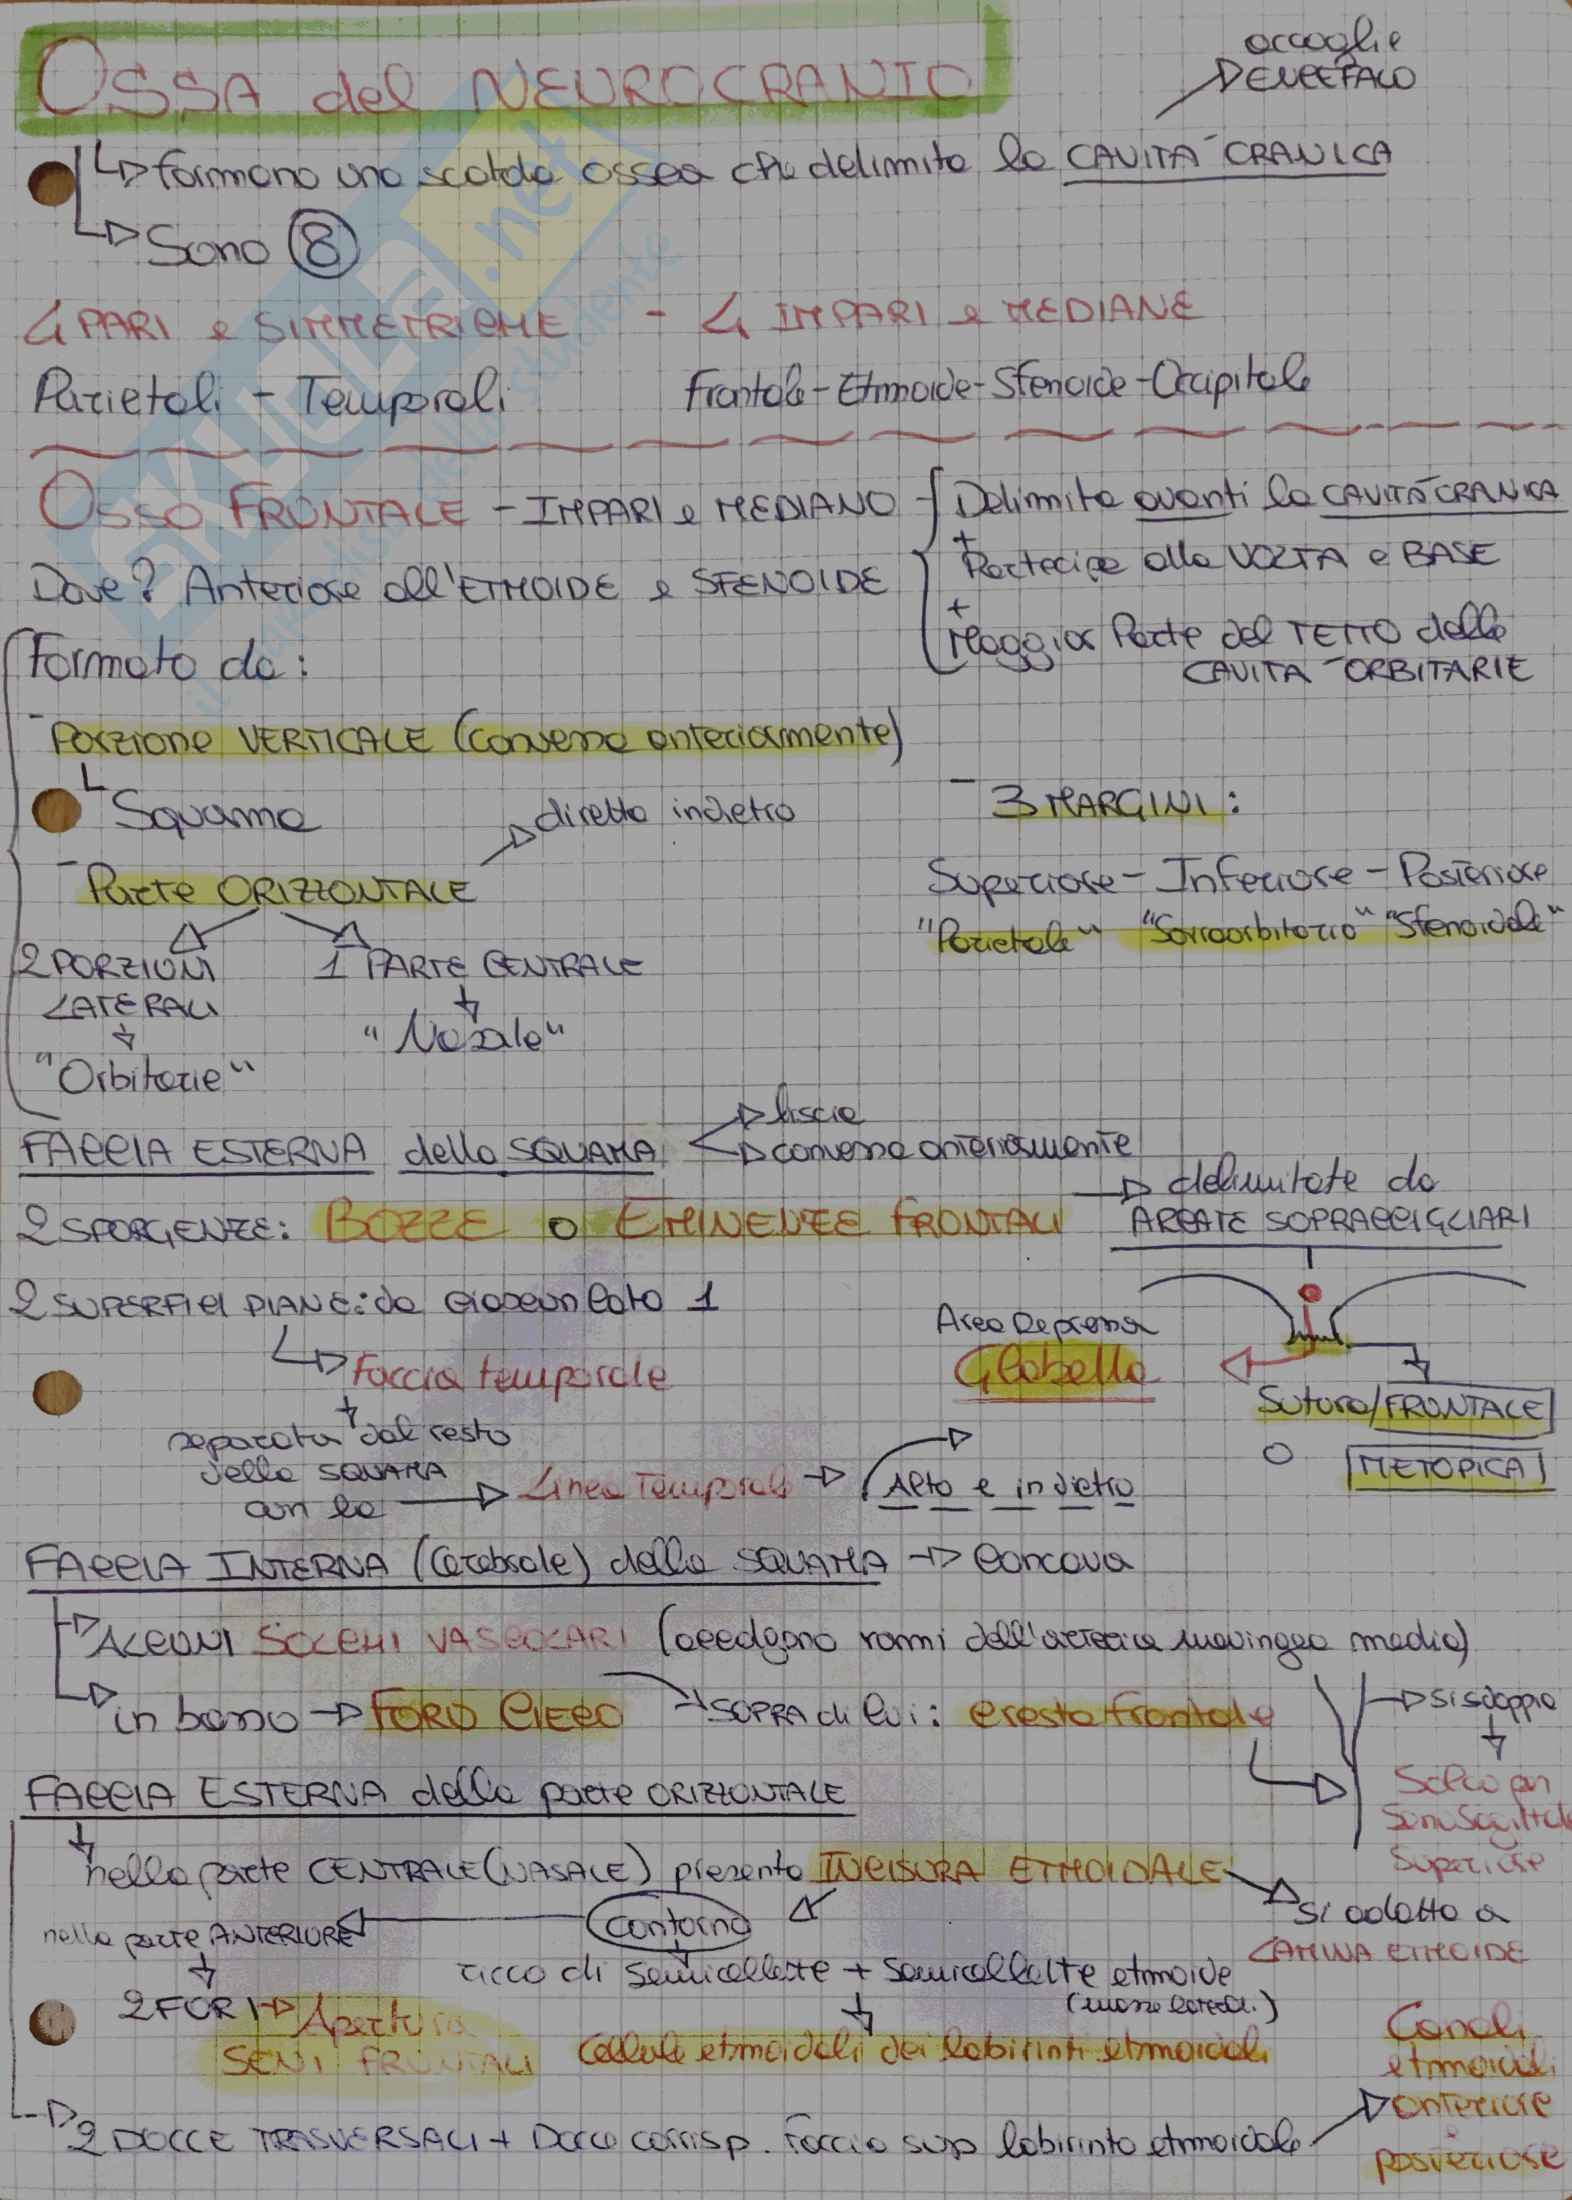 OSSA del NEUROCRANIO
accoglie
ENCEFALO
formano una scatola ossea che delimita la CAVITÀ CRANICA
Sono 8
4 PARI e SIMMETRICHE - 4 IMPARI e MEDIANE
Parietali - Temporali Frontale - Etmoide - Sfenoide - Occipitale
OSSO FRONTALE - IMPARI e MEDIANO
Delimita avanti la CAVITÀ CRANICA
+
Partecipa alla VOLTA e BASE
+
Maggior Parte del TETTO delle
CAVITÀ ORBITARIE
Dove? Anteriore all'ETMOIDE e SFENOIDE
Formato da:
- Porzione VERTICALE (convessa anteriormente)
Squama
- Parte ORIZZONTALE
diretta indietro
2 PORZIONI
LATERALI
"Orbitarie"
1 PARTE CENTRALE
"Nasale"
- 3 MARGINI:
Superiore - Inferiore - Posteriore
"Parietale" "Sovraorbitario" "Sfenoidale"
FACCIA ESTERNA della SQUAMA
liscia
convessa anteriormente
2 SPORGENZE: BOZZE o EMINENZE FRONTALI
delimitate da
ARCATE SOPRACCIGLIARI
2 SUPERFICI PIANE: da ciascun lato 1
Faccia temporale
separata dal resto
della SQUAMA
con la
Linea Temporale
Alto e indietro
Area Depressa
Glabella
Sutura/FRONTALE
o METOPICA
FACCIA INTERNA (Cerebrale) della SQUAMA → Concava
ALCUNI SOLCHI VASCOLARI (accolgono rami dell'arteria meningea media)
in basso → FORO CIECO
SOPRA di lui: Cresta frontale
si sdoppia
Solco per
Seno Sagittale
Superiore
FACCIA ESTERNA della parte ORIZZONTALE
nella parte CENTRALE (NASALE) presenta INCISURA ETMOIDALE
si adatta a
LAMINA ETMOIDE
contorno
nella parte ANTERIORE
2 FORI → Apertura
SENI FRONTALI
ricco di semicellette + semicellette etmoide
(masse lateral.)
Cellule etmoidali dei labirinti etmoidali
2 DOCCE TRASVERSALI + Docce corrisp. Faccia sup labirinto etmoidale
Canali
etmoidali
anteriore
e
posteriore
SKUOLA.net